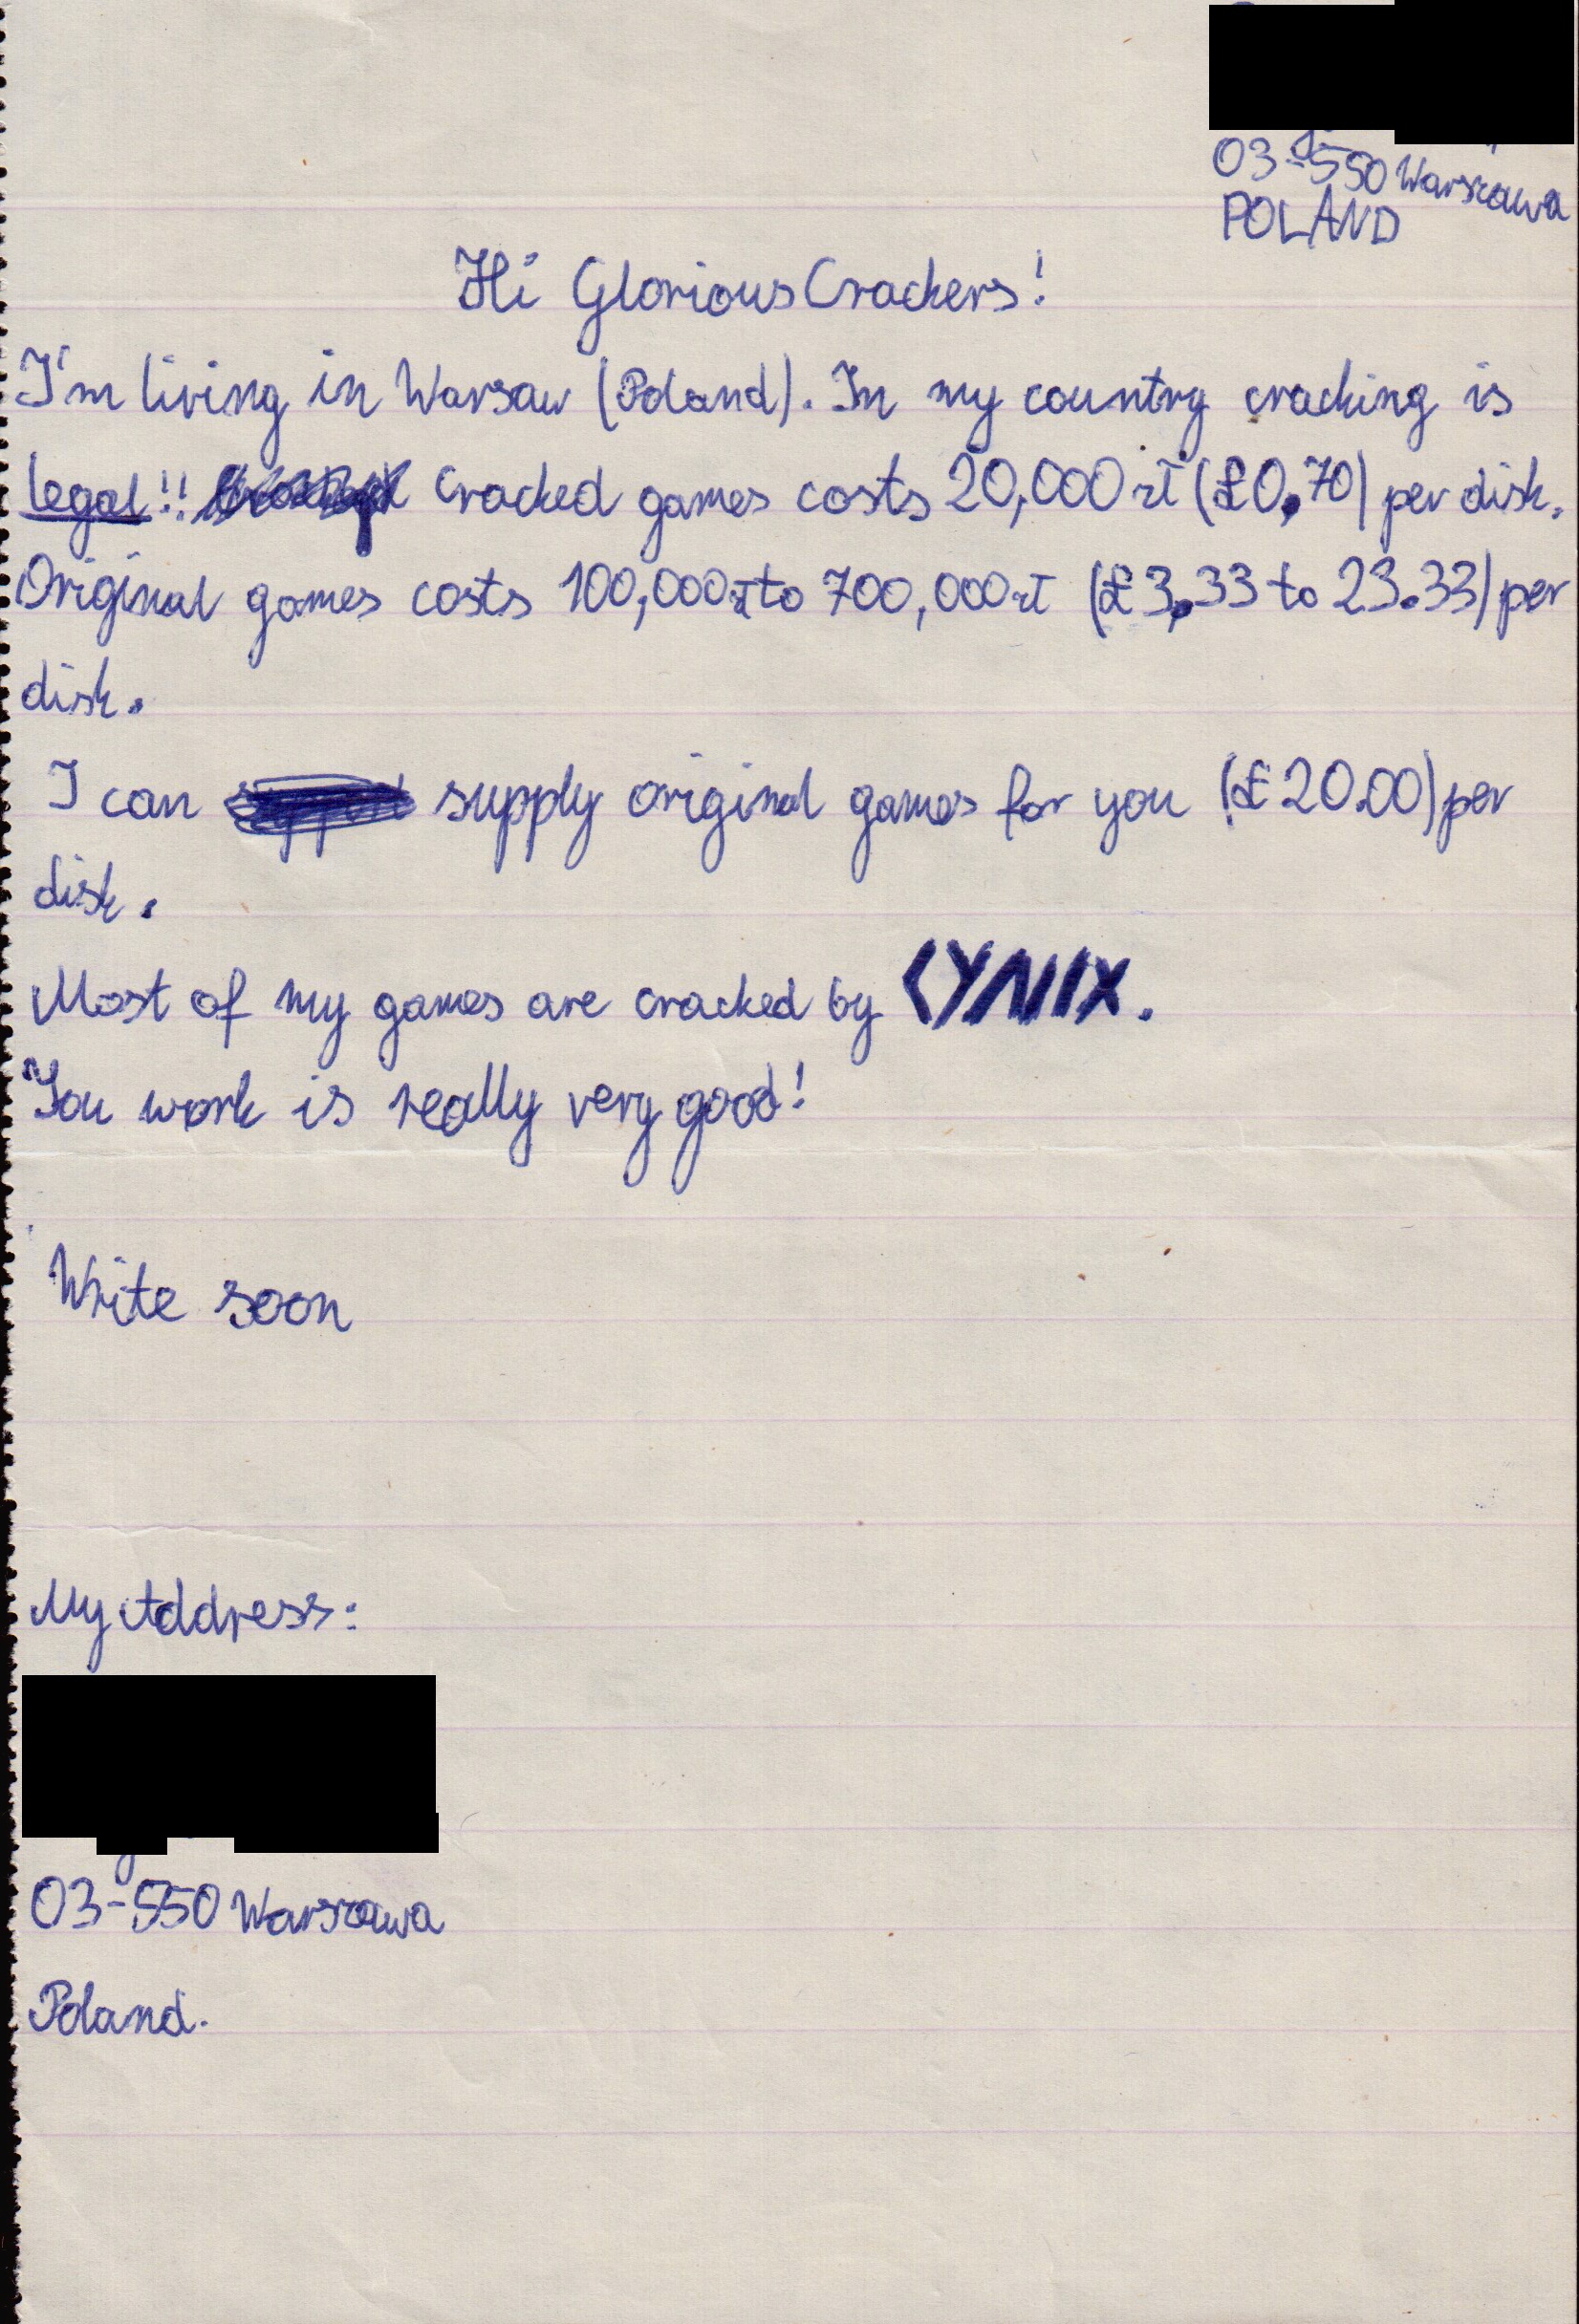 03-550 Warszawa
POLAND
Hi Glorious Crackers!
I'm living in Warsaw (Poland). In my country cracking is
legal!! Cracked games costs 20,000 zł (£0.70) per disk.
Original games costs 100,000zł to 700,000zł (£3.33 to 23.33) per
disk.
I can supply original games for you (£20.00) per
disk.
Most of my games are cracked by CYNIX.
You work is really very good!
Write soon
My Address:
03-550 Warszawa
Poland.